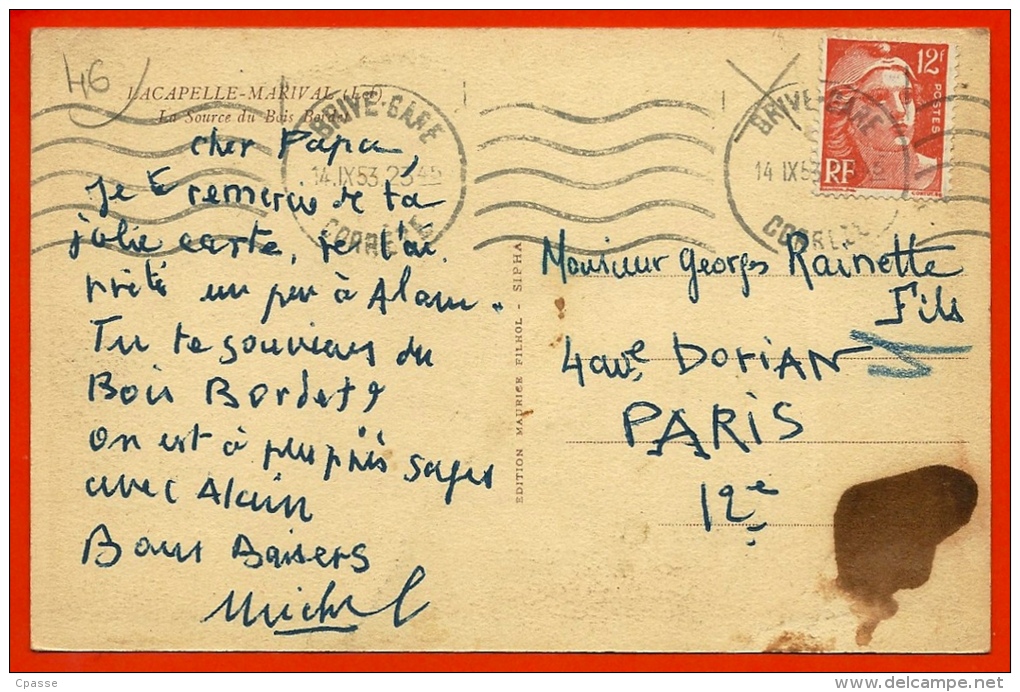 46
LACAPELLE-MARIVAL (Lot)
La Source du Bois Bordet
BRIVE-GARE
14.IX53 23 45
CORREZE
BRIVE-GARE
14 IX53
CORREZE
12f
POSTES
RF
cher Papa,
Je te remercie de ta
jolie carte, je l'ai
prêté un peu à Alain.
Tu te souviens du
Bois Bordet ?
On est à peu près sages
avec Alain
Bons Baisers
Michel
EDITION MAURICE FILHOL - SIPHA
Monsieur Georges Rainette
Fils
4 ave DORIAN
PARIS
12e
Cpasse
delcampe.net